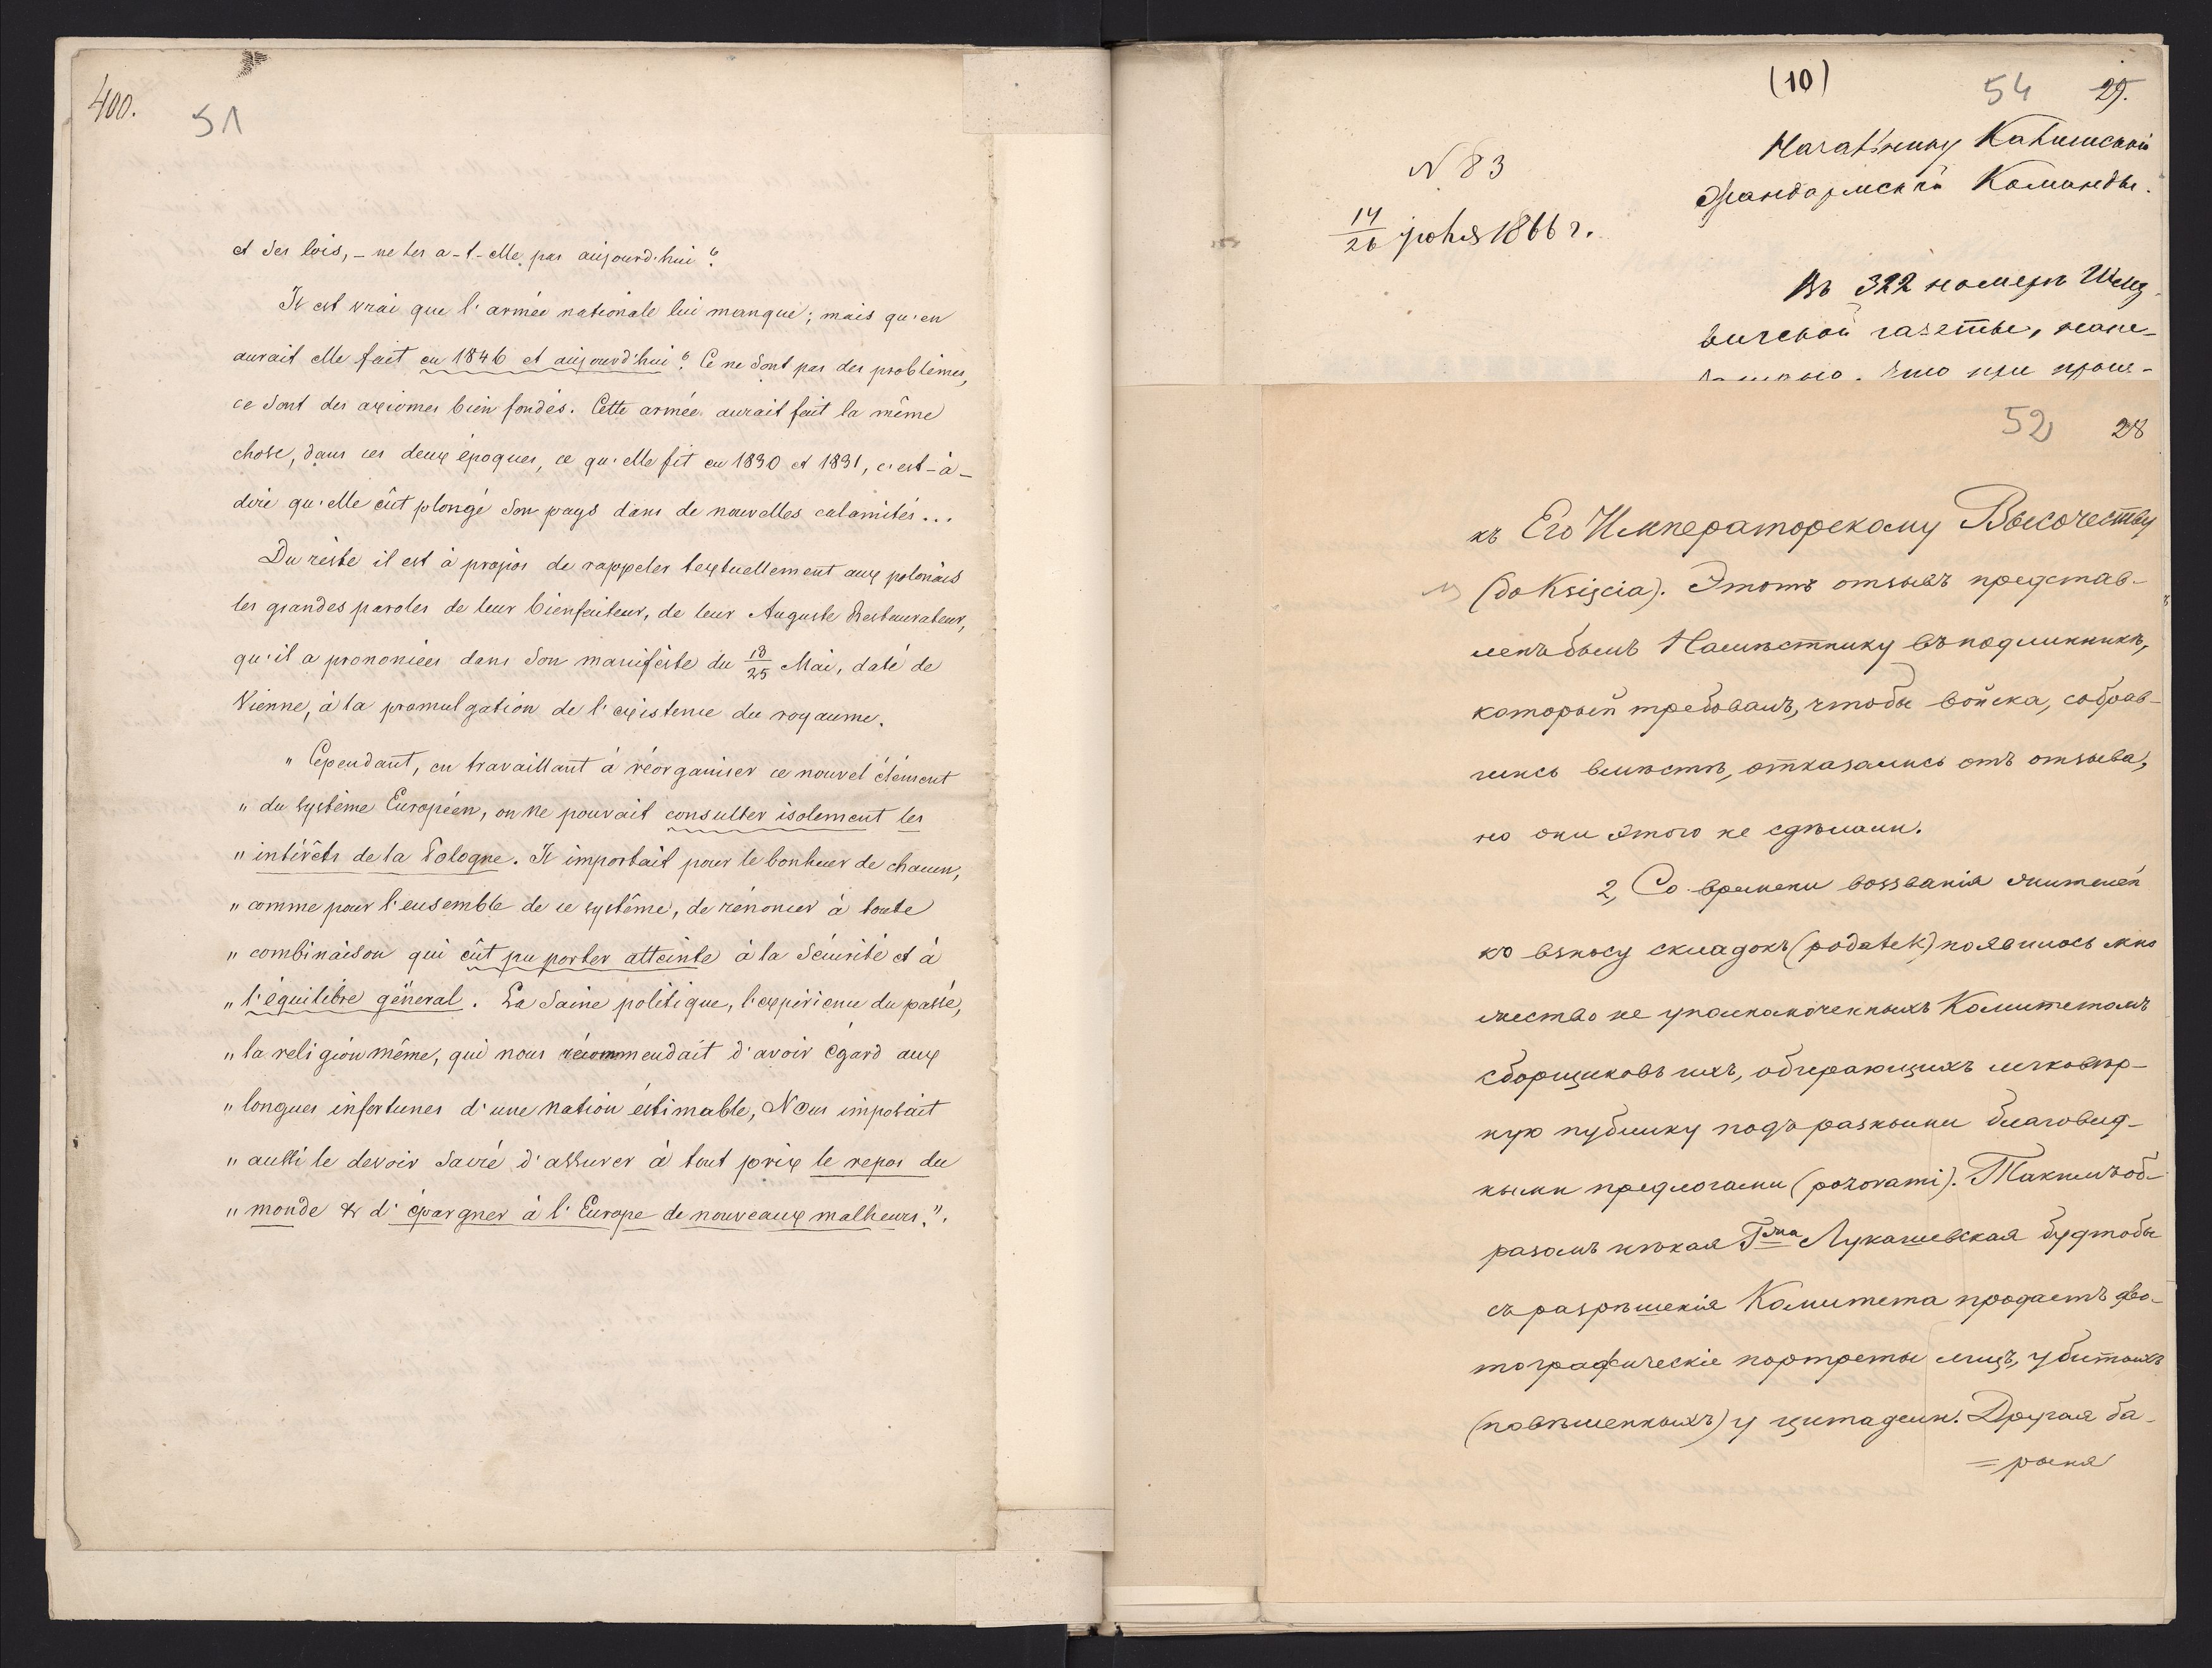 400.
51
et ses lois, – ne les a-t-elle pas aujourd'hui?
Il est vrai que l'armée nationale lui manque; mais qu'en
aurait elle fait en 1846 et aujourd'hui? Ce ne sont pas des problèmes,
ce sont des axiomes bien fondés. Cette armée aurait fait la même
chose, dans ces deux époques, ce qu'elle fit en 1830 et 1831, c'est-à-
dire qu'elle eût plongé son pays dans de nouvelles calamités...
Du reste il est à propos de rappeler textuellement aux polonais
les grandes paroles de leur bienfaiteur, de leur Auguste Restaurateur,
qu'il a prononcées dans son manifeste du 13/25 Mai, daté de
Vienne, à la promulgation de l'existence du royaume.
" Cependant, en travaillant à réorganiser ce nouvel élément
" du système Européen, on ne pouvait consulter isolement les
" intérêts de la Pologne. Il importait pour le bonheur de chacun,
" comme pour l'ensemble de ce système, de rénoncer à toute
" combinaison qui eût pu porter atteinte à la sécurité et à
" l'équilibre géneral. La saine politique, l'expérience du passé,
" la religion même, qui nous récommendait d'avoir égard aux
" longues infortunes d'une nation éstimable, Nous imposait
" aussi le devoir sacré d'assurer à tout prix le repos du
" monde & d'épargner à l'Europe de nouveaux malheurs.".
(10)
54 29.
N 83
14/26 1866 г.
Начальнику Калишской
Жандармской Команды.
Въ 322 номерѣ
газеты, напе-
что при
52 28
къ Его Императорскому Высочеству
(do Księcia). Этотъ отзывъ представ-
ленъ былъ Намѣстнику въ подлинникѣ,
который требовалъ, чтобы войска, собрав-
шись вмѣстѣ, отказались отъ отзыва,
но они этого не сдѣлали.
2, Со времени воззванія жителей
ко взносу складокъ (podatek) появилось мно
жество не уполномоченныхъ Комитетомъ
сборщиковъ ихъ, обирающихъ легковѣр-
ную публику подъ разными благовид-
ными предлогами (pozorami). Такимъ об-
разомъ нѣкая Гжа Лукашевская будтобы
съ разрѣшенія Комитета продаетъ фо-
тографическіе портреты лицъ, убитыхъ
(повѣшенныхъ) у цитадели. Другая ба-
= рыня